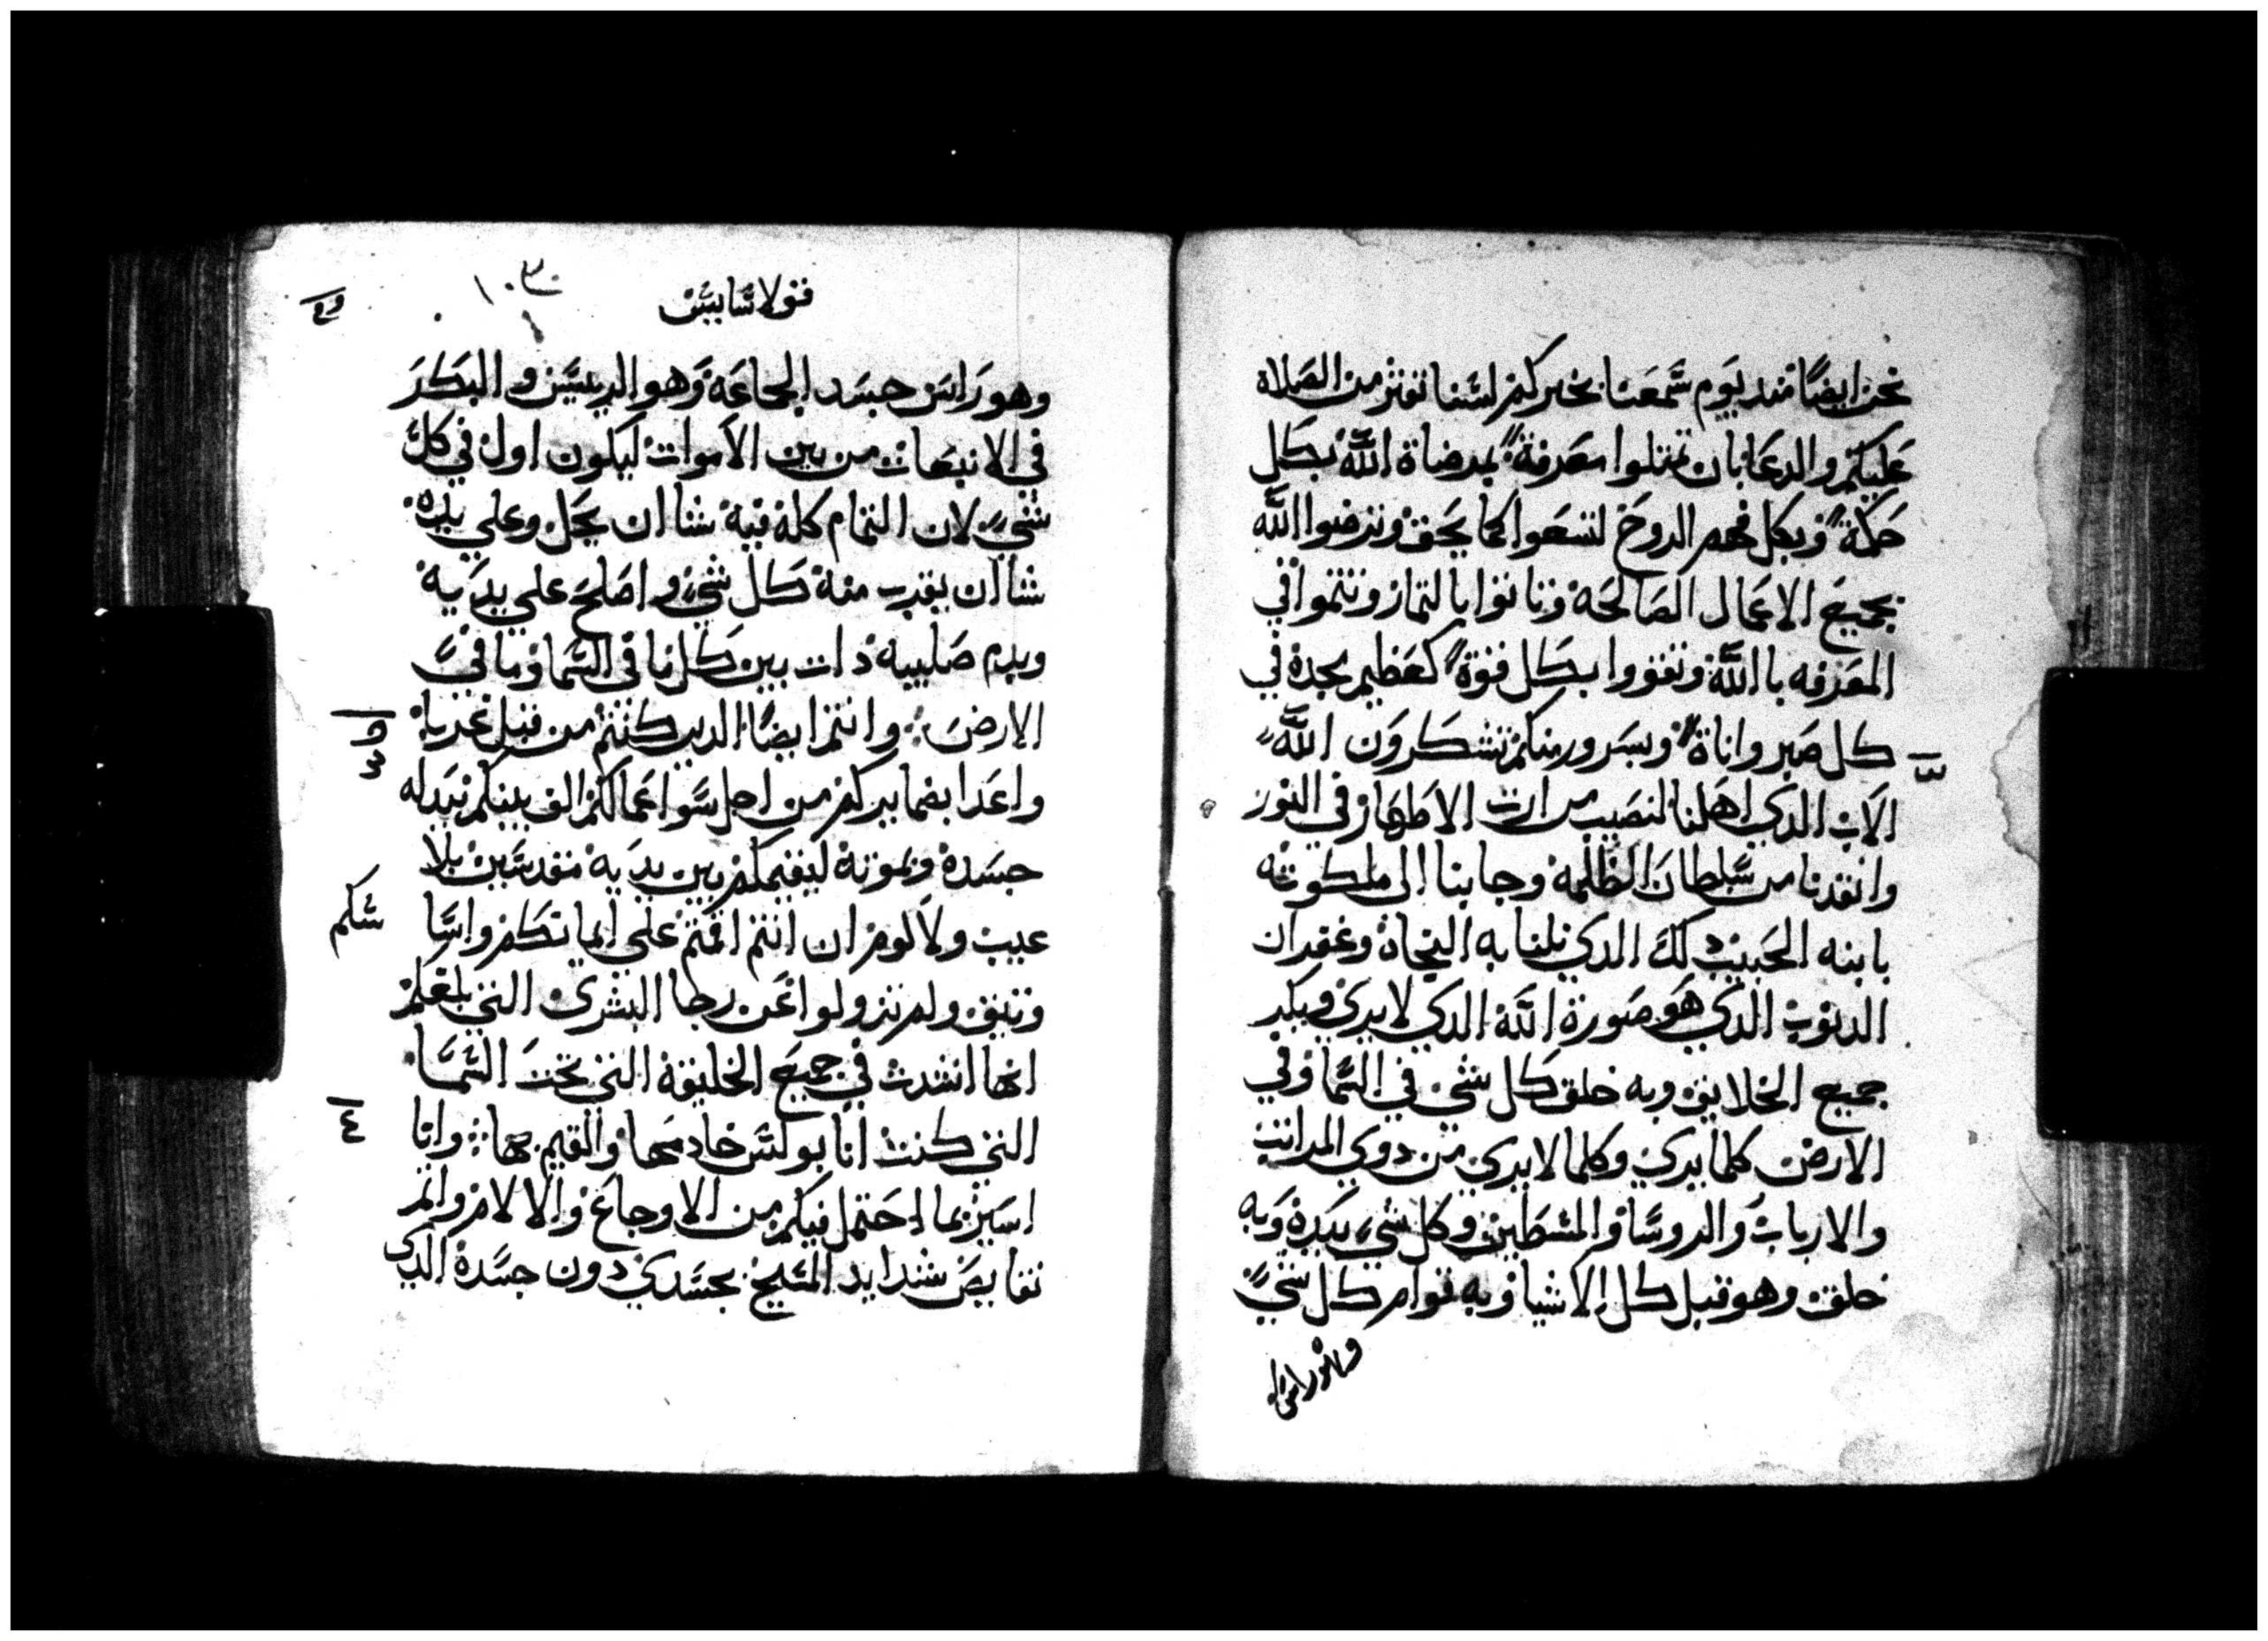 نحن ايضًا مند يوم سمعنا بخبركم لسنا نفتر من الصلاة
عليكم والدعا بان تمتلوا معرفة بمرضاة الله بكل
حكمة وبكل فهم الروح لتسعوا كما يحق وترضوا الله
بجميع الاعمال الصالحة وتاتوا بالتمار وتنموا في
المعرفه بالله وتقووا بكل قوة كعظيم مجده في
كل صبر واناة وبسرور منكم تشكرون الله
الاب الدي اهلنا لنصيب مرات الاطهار في النور
وانقدنا من سلطان الظلمة وجا بنا الى ملكوته
بابنه الحبيب دلك الدي نلنا به النجاة وغفران
الدنوب الدي هو صورة الله الدي لا يرى وبكر
جميع الخلايق وبه خلق كل شي في السما وفي
الارض كلما يرى وكلما لا يرى من دوي المراتب
والارباب والروسا والمسطين وكل شي بيده وبه
خلق وهو قبل كل الاشيا وبه قوام كل شي
وهو راس
قولاسايس
١٠٣
وهو راس جسد الجماعة وهو الريس والبكر
في الانبعات من بين الاموات ليكون اول في كل
شي لان التمام كله فيه شا ان يحل وعلى يده
شا ان يقرب منه كل شي واصلح على يديه
وبدم صليبه دات بين كل ما في السما وما في
الارض وانتم ايضًا الدين كنتم من قبل غربا
واعدا بضمايركم من اجل سو اعمالكم الف بينكم ببدله
جسده وبموته ليقيمكم بين يديه مقدسين بلا
عيب ولا لوم ان انتم اقمتم على ايمانكم واسا
سكم
وتيق ولم تزولوا عن رجا البشرى التي بلغكم
انها انشدت في جميع الخليقة التي تحت السما
التي كنت انا بولس خادمها والقيم بها وانا
٤
اسير بما احتمل فيكم من الاوجاع والالام واتم
نقايص شدايد المسيح بجسدي دون جسده الدي